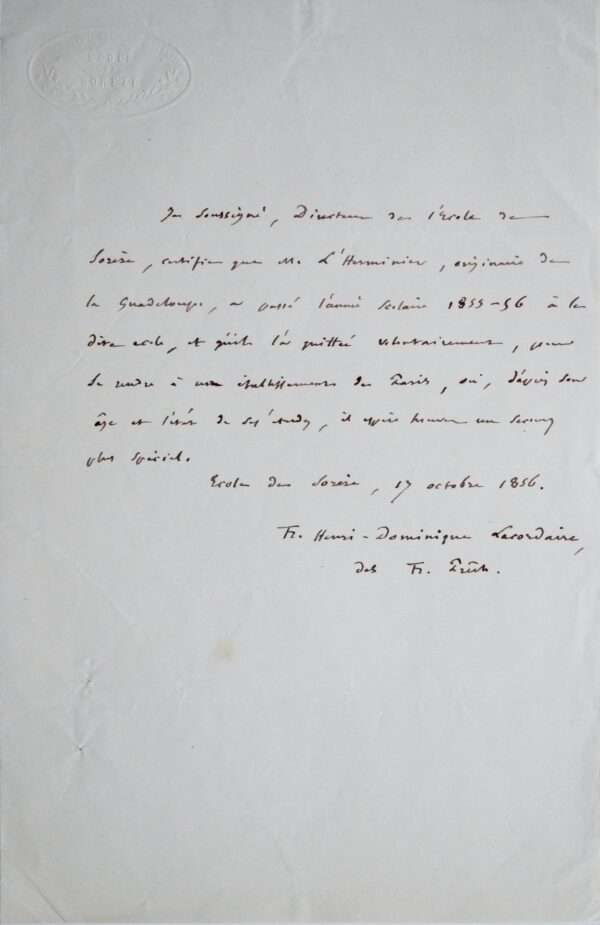 ECOLE
SORÈZE
Je soussigné, Directeur de l'École de
Sorèze, certifie que M. L'Herminier, originaire de
la Guadeloupe, a passé l'année scolaire 1855-56 à la
dite école, et qu'il l'a quittée volontairement, pour
se rendre à un établissement de Paris, où, depuis son
âge et l'état de ses études, il espère trouver un secours
plus spécial.
École de Sorèze, 17 octobre 1856.
Fr. Henri-Dominique Lacordaire,
des Fr. Prêch.